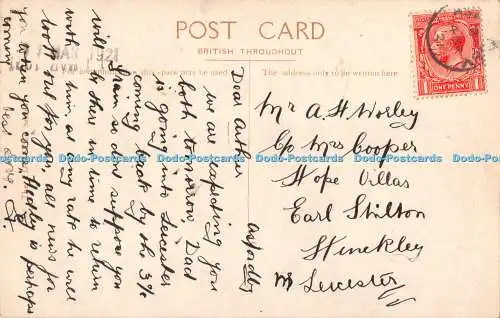 POST CARD
BRITISH THROUGHOUT
The address only to be written here
Dear Arthur
Asfordby
we are expecting you
both tomorrow Dad
is going into Leicester
coming back by the 3
train so dont suppose you
will be there in time to return
with him, at any rate he will
look out for you, all news for
you when you come,
is perhaps
coming
best love
Mr A H Worley
C/o Mrs Cooper
Hope Villas
Earl Shilton
Hinckley
Nr Leicester
ONE PENNY
1 1
Dodo-Postcards Dodo-Postcards Dodo-Postcards Dodo-Postcards